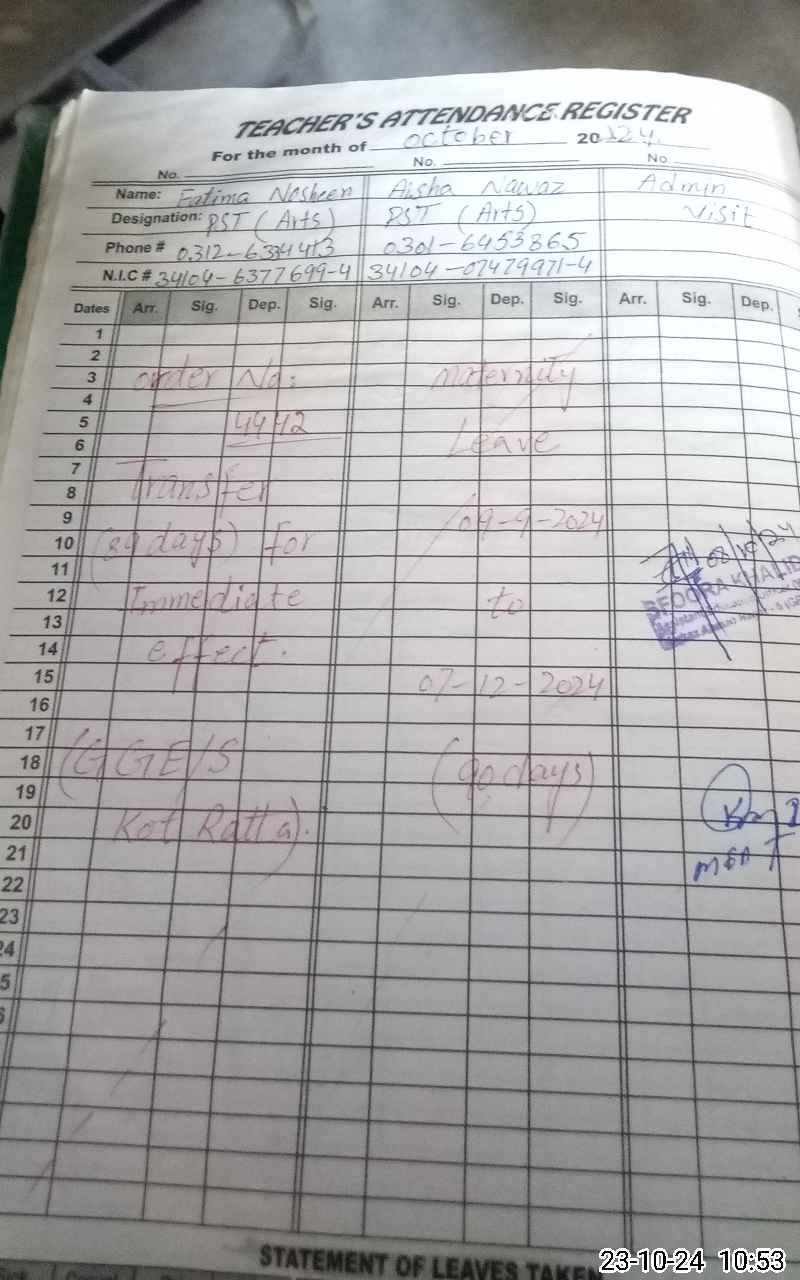 TEACHER'S ATTENDANCE REGISTER
For the month of October 2024
No. No. No.
Name: Fatima Nosheen Aisha Nawaz Admin
Designation: PST (Arts) PST (Arts) Visit
Phone # 0301-6453865
N.I.C # 34104-6377699-4 34104-07479971-4
Dates Arr. Sig. Dep. Sig. Arr. Sig. Dep. Sig. Arr. Sig. Dep.
1
2
3 order No: Maternity
4
5 4442
6 Leave
7
8 Transfer
9 09-9-2024
10 (89 days) for
11
12 Immediate to
13
14 effect.
15 07-12-2024
16
17
18 (GGE/S (90 days)
19
20 Kot Ratta).
21
22
23
24
5
STATEMENT OF LEAVES TAKEN
23-10-24 10:53